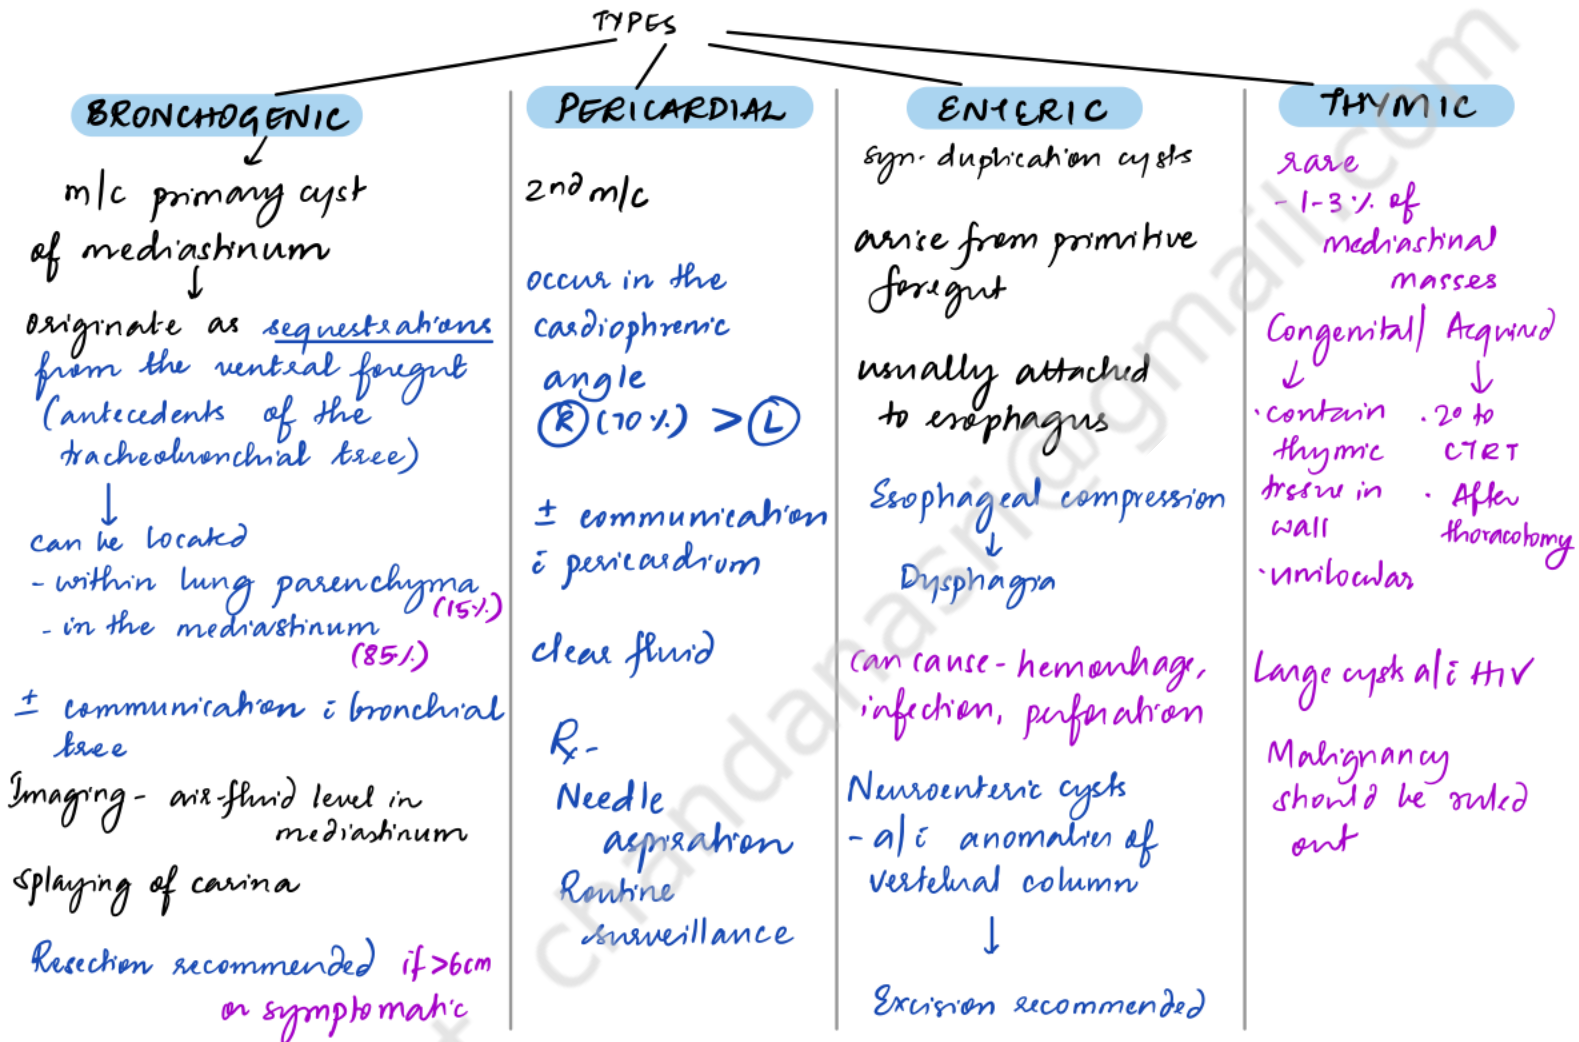 TYPES
BRONCHOGENIC
m/c primary cyst
of mediastinum
originate as sequestrations
from the ventral foregut
(antecedents of the
tracheobronchial tree)
can be located
- within lung parenchyma
(15%)
- in the mediastinum
(85%)
± communication c̄ bronchial
tree
Imaging - air-fluid level in
mediastinum
splaying of carina
Resection recommended if >6cm
or symptomatic
PERICARDIAL
2nd m/c
occur in the
cardiophrenic
angle
R (70%) > L
± communication
c̄ pericardium
clear fluid
Rx -
Needle
aspiration
Routine
surveillance
ENTERIC
syn- duplication cysts
arise from primitive
foregut
usually attached
to esophagus
Esophageal compression
Dysphagia
can cause - hemorrhage,
infection, perforation
Neuroenteric cysts
- a/c̄ anomalies of
vertebral column
Excision recommended
THYMIC
rare
- 1-3% of
mediastinal
masses
Congenital/ Acquired
· contain
thymic
tissue in
wall
· unilocular
· 2° to
CTRT
· After
thoracotomy
Large cysts a/c̄ HIV
Malignancy
should be ruled
out
chandanasri@gmail.com